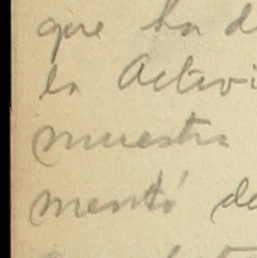 que ha d
la Activi
muestra
mentó de